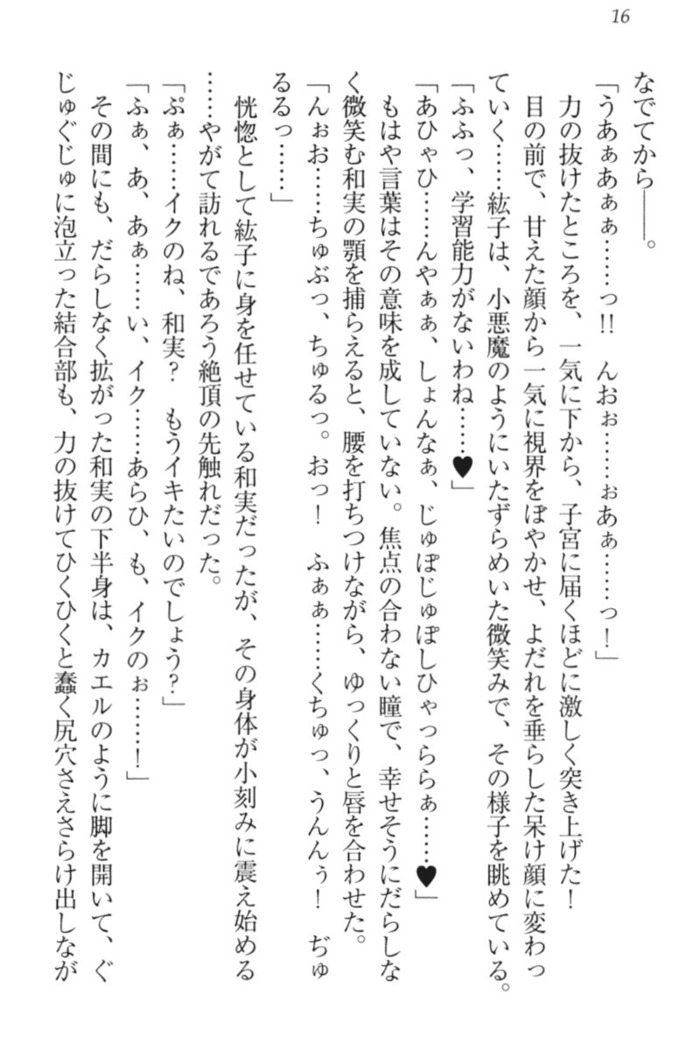 16
なでてから――。
「うあぁあぁぁ……っ!!　んおぉ……ぉあぁ……っ！」
力の抜けたところを、一気に下から、子宮に届くほどに激しく突き上げた！
目の前で、甘えた顔から一気に視界をぼやかせ、よだれを垂らした呆け顔に変わっ
ていく……紘子は、小悪魔のようにいたずらめいた微笑みで、その様子を眺めている。
「ふふっ、学習能力がないわね……♥」
「あひゃひ……んやぁぁ、しょんなぁ、じゅぽじゅぽしひゃっららぁ……♥」
もはや言葉はその意味を成していない。焦点の合わない瞳で、幸せそうにだらしな
く微笑む和実の顎を捕らえると、腰を打ちつけながら、ゆっくりと唇を合わせた。
「んぉお……ちゅぶっ、ちゅるっ。おっ！　ふぁぁ……くちゅっ、うんんぅ！　ぢゅ
るるっ……」
恍惚として紘子に身を任せている和実だったが、その身体が小刻みに震え始める
……やがて訪れるであろう絶頂の先触れだった。
「ぷぁ……イクのね、和実？　もうイキたいのでしょう？」
「ふぁ、あ、あぁ……い、イク……あらひ、も、イクのぉ……！」
その間にも、だらしなく拡がった和実の下半身は、カエルのように脚を開いて、ぐ
じゅぐじゅに泡立った結合部も、力の抜けてひくひくと蠢く尻穴さえさらけ出しなが